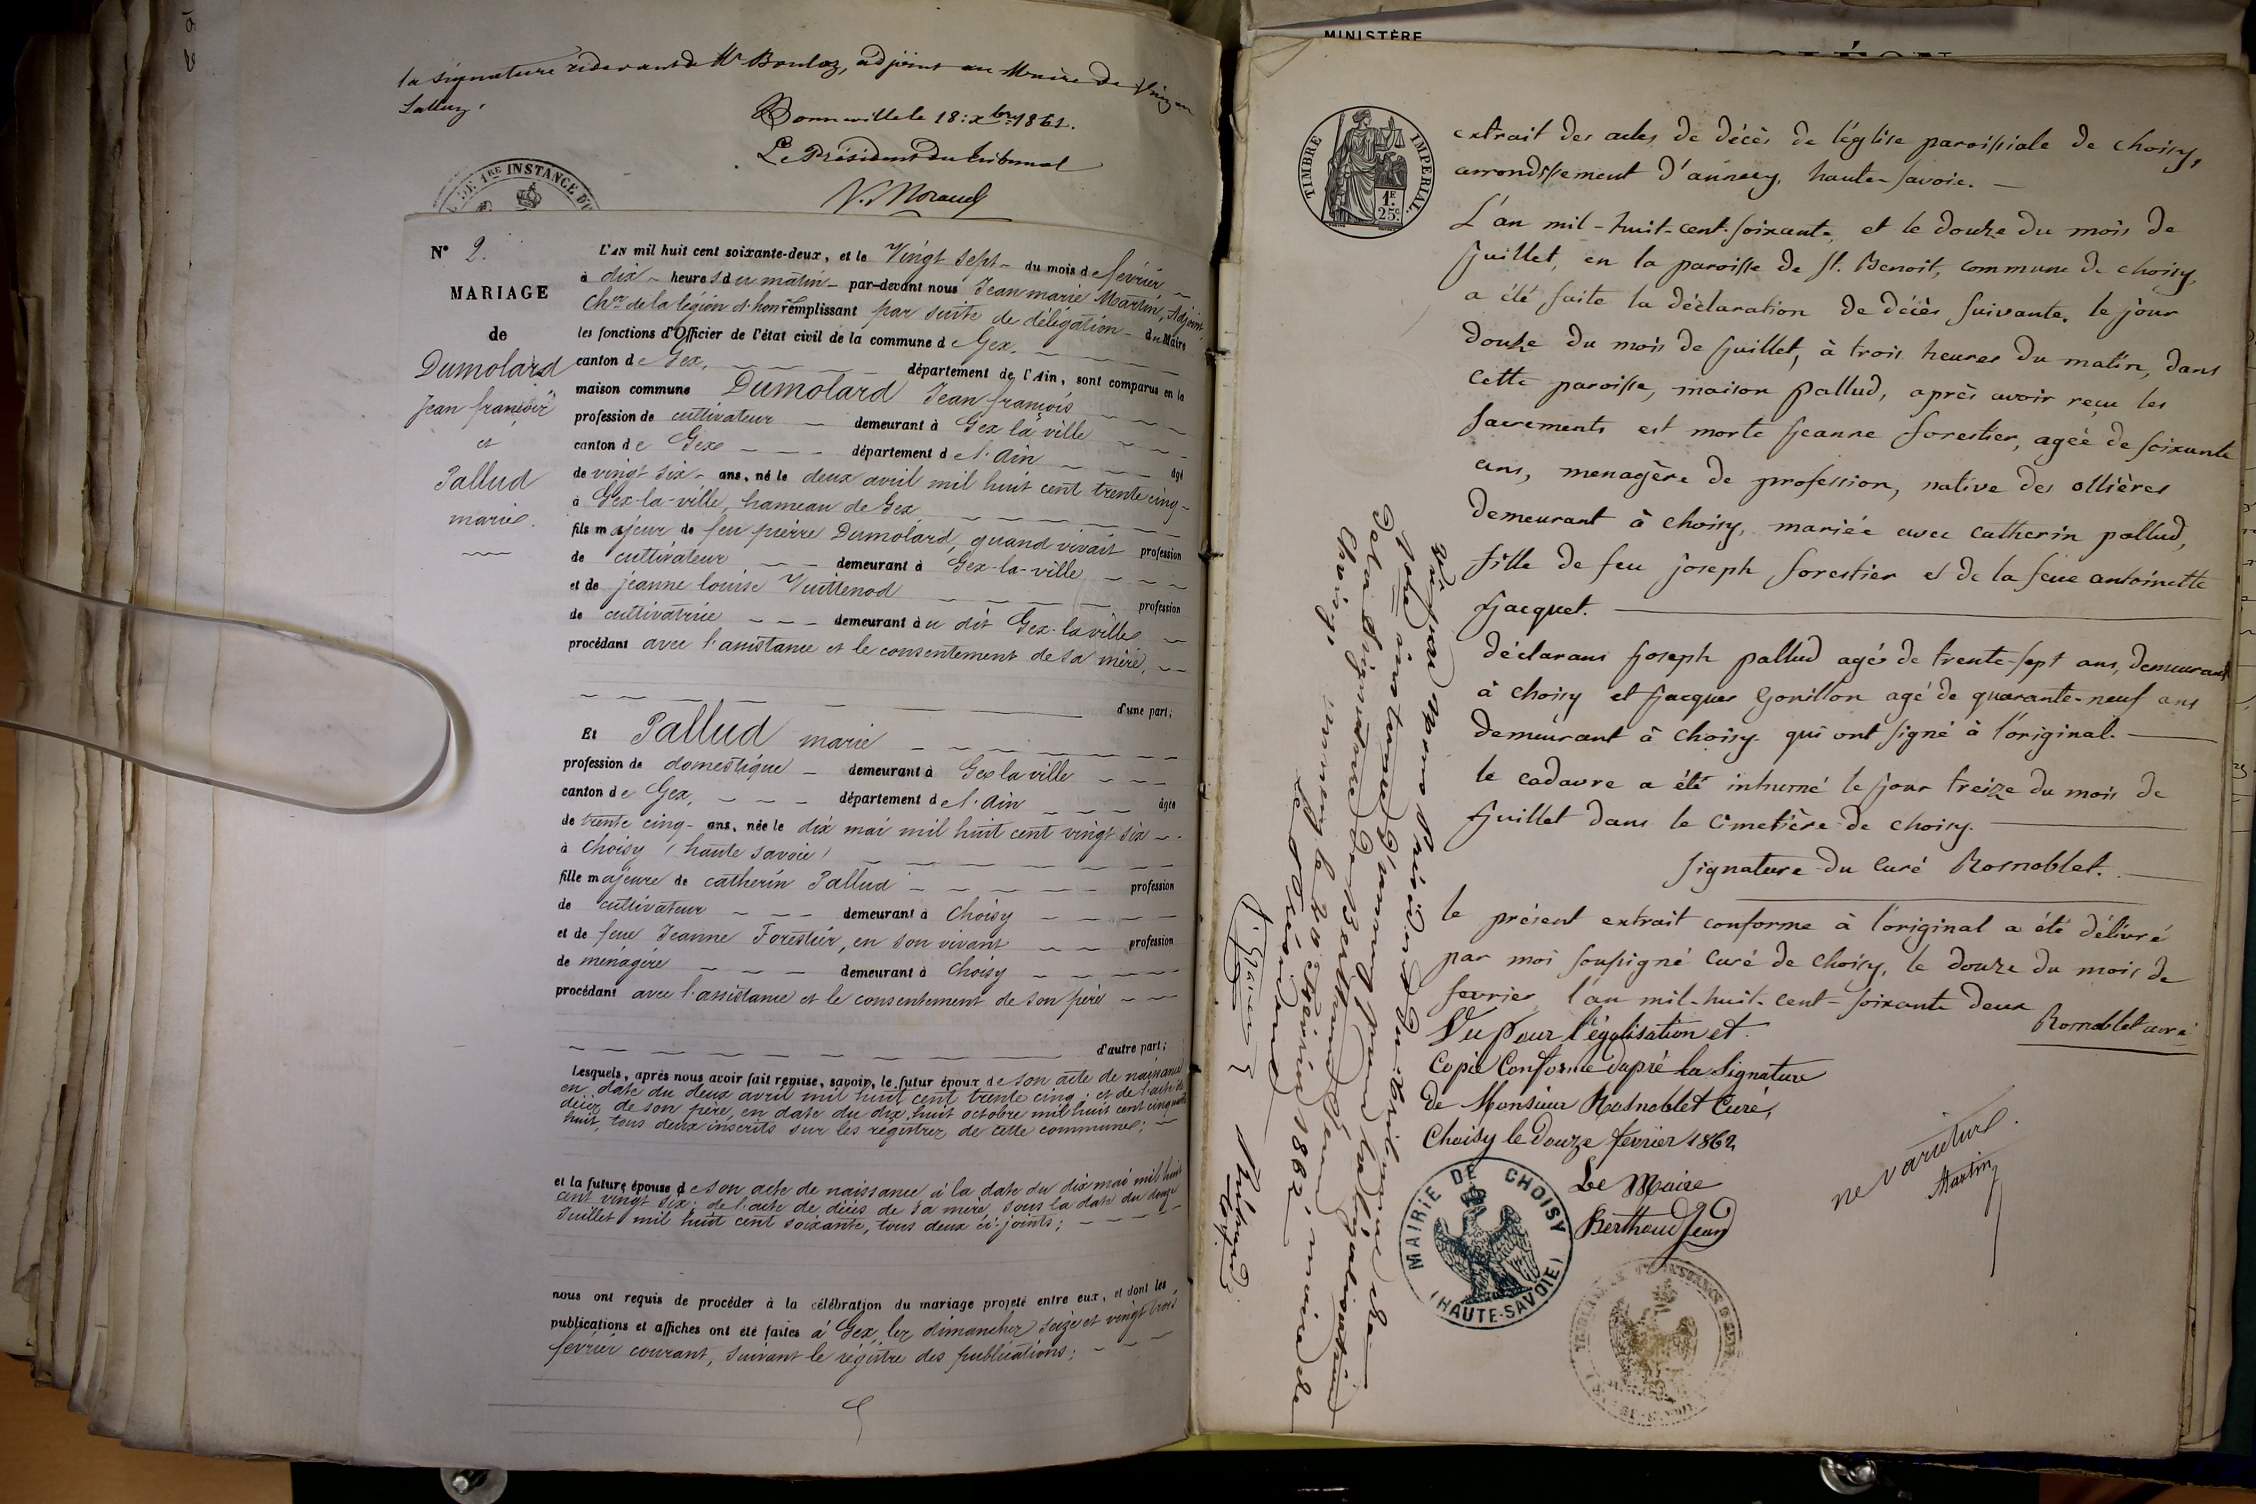 la signature ci devant de Mr Boulaz, adjoint au Maire de
Bonneville le 18: xbre 1861.
Le Président du tribunal
V. Morand
DE 1RE INSTANCE D
No 2.
MARIAGE
de
Dumolard
Jean françois
et
Pallud
marie.
L'AN mil huit cent soixante-deux, et le Vingt sept du mois de février
à dix heures du matin par-devant nous Jean marie Martin, Adjoint
Chr de la légion d'hon remplissant par suite de délégation du Maire
les fonctions d'Officier de l'état civil de la commune de Gex.
canton de Gex, département de l'Ain, sont comparus en la
maison commune Dumolard Jean françois
profession de cultivateur demeurant à Gex la ville
canton de Gex département de l'Ain âgé
de vingt six ans, né le deux avril mil huit cent trente cinq
à Gex-la-ville, hameau de Gex
fils majeur de feu pierre Dumolard, quand vivait profession
de cultivateur demeurant à Gex-la-ville
et de jeanne louise Vuittenod profession
de cultivatrice demeurant au dit Gex-la ville
procédant avec l'assistance et le consentement de sa mère,
d'une part;
Et Pallud marie
profession de domestique demeurant à Gex la ville
canton de Gex, département de l'Ain âgée
de trente cinq ans, née le dix mai mil huit cent vingt six
à Choisy (haute savoie)
fille majeure de catherin Pallud profession
de cultivateur demeurant à Choisy
et de feue Jeanne Forestier, en son vivant profession
de ménagère demeurant à Choisy
procédant avec l'assistance et le consentement de son père
d'autre part;
Lesquels, après nous avoir fait remise, savoir, le futur époux de son acte de naissance
en date du deux avril mil huit cent trente cinq; et de l'acte de
décès de son père, en date du dix huit octobre mil huit cent cinquante
huit, tous deux inscrits sur les registres de cette commune;
et la future épouse de son acte de naissance à la date du dix mai mil huit
cent vingt six; de l'acte de décès de sa mère, sous la date du douze
Juillet mil huit cent soixante, tous deux ci-joints;
nous ont requis de procéder à la célébration du mariage projeté entre eux, et dont les
publications et affiches ont été faites à Gex, les dimanches seize et vingt trois
février courant, suivant le régistre des publications;
MINISTÈRE
TIMBRE IMPERIAL.
1F.
25c.
extrait des actes de décès de l'église paroissiale de choisy,
arrondissement d'annecy, haute-savoie.
L'an mil-huit-cent-soixante, et le douze du mois de
juillet, en la paroisse de st. Benoit, commune de choisy,
a été faite la déclaration de décès suivante. le jour
douze du mois de juillet, à trois heures du matin, dans
cette paroisse, maison pallud, après avoir reçu les
sacrements est morte jeanne forestier, agée de soixante
ans, menagère de profession, native des ollières
demeurant à choisy, mariée avec catherin pallud,
fille de feu joseph forestier et de la feue antoinette
jacquet.
déclarans joseph pallud agé de trente-sept ans, demeurant
à choisy et jacques Gonillon agé de quarante-neuf ans
demeurant à choisy qui ont signé à l'original.
le cadavre a été inhumé le jour treize du mois de
juillet dans le cimetière de choisy.
signature du curé Rosnoblet.
le présent extrait conforme à l'original a été délivré
par moi soussigné curé de choisy, le douze du mois de
fevrier l'an mil-huit-cent-soixante deux
Rosnoblet curé
Vu pour légalisation et
Copie Conforme dapré la Signature
de Monsieur Rosnoblet Curé,
Choisy le douze fevrier 1862
Le Maire
Berthoud Jean
MAIRIE DE CHOISY
(HAUTE-SAVOIE)
ne varietur.
Martin
Vu par nous Président du tribunal de
1ère instance d'annecy pour la légalisation
de la signature de Berthoud Jean, maire de
Choisy.
annecy le 20 Février 1862
le Président